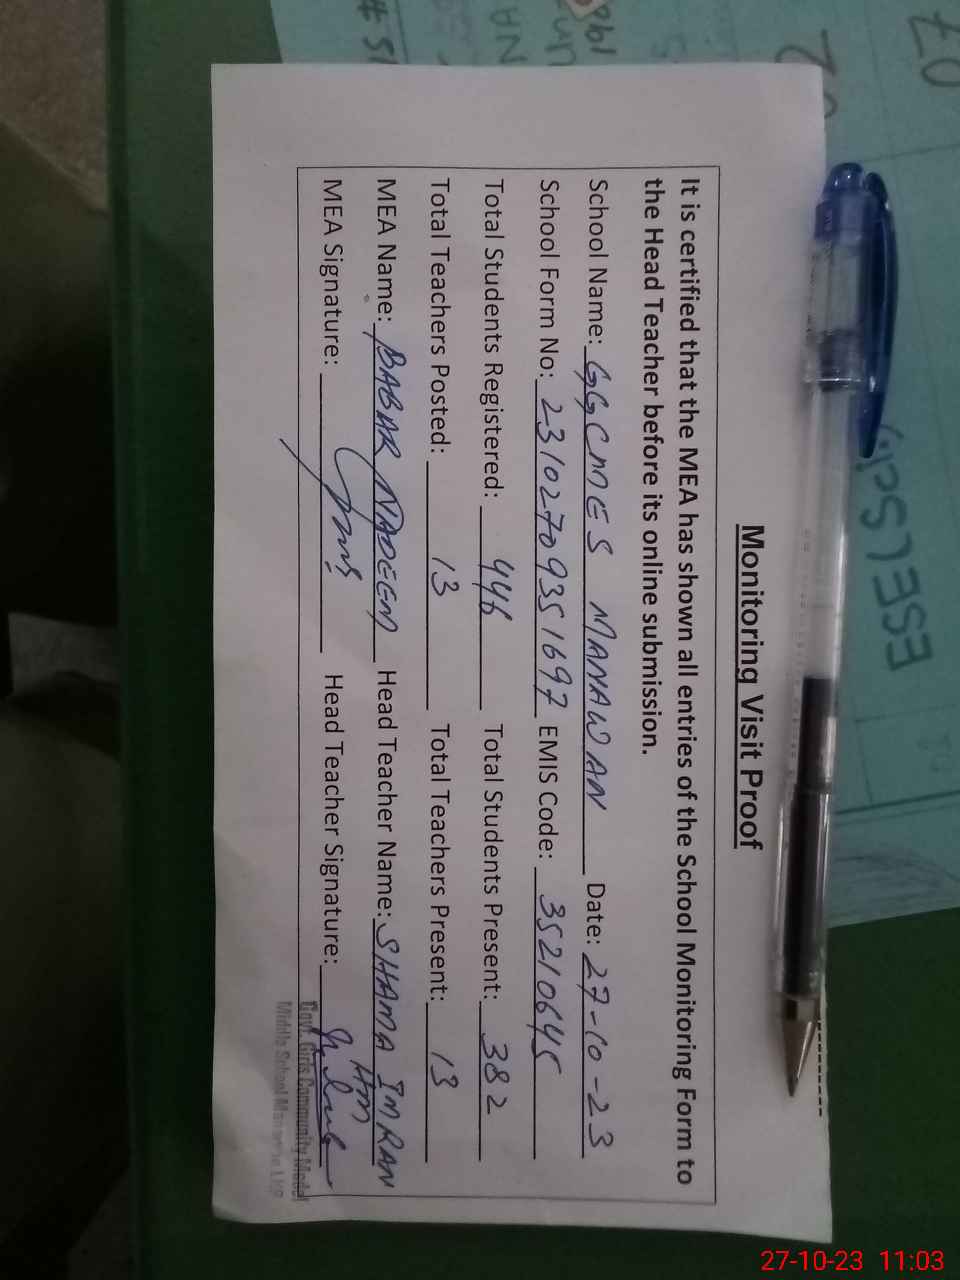 Monitoring Visit Proof
It is certified that the MEA has shown all entries of the School Monitoring Form to
the Head Teacher before its online submission.
School Name: GGCMES MANAWAN Date: 27-10-23
School Form No: 23102709351697 EMIS Code: 35210645
Total Students Registered: 446 Total Students Present: 382
Total Teachers Posted: 13 Total Teachers Present: 13
MEA Name: BABAR NADEEM Head Teacher Name: SHAMA IMRAN
HM
MEA Signature: Head Teacher Signature:
Govt. Girls Community Model
Middle School
ESELSC
27-10-23 11:03